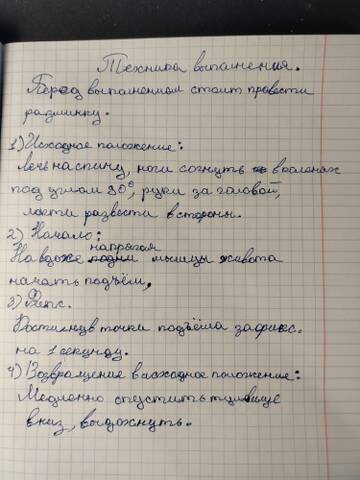 Техника выпалнения.
Перед выпалнением стоит провести
разминку.
1) Исходное положение:
Лечь на спину, ноги согнуть в коленях
под углом 90°, руки за головой,
локти развести в стороны.
2) Начало:
На вдохе напрягая мышцы живота
начать подъём,
3)
Достигнув точки подъёма зафикс.
на 1 секунду.
4) Возвращение в исходное положение:
Медленно опустить туловище
вниз, выдохнуть.